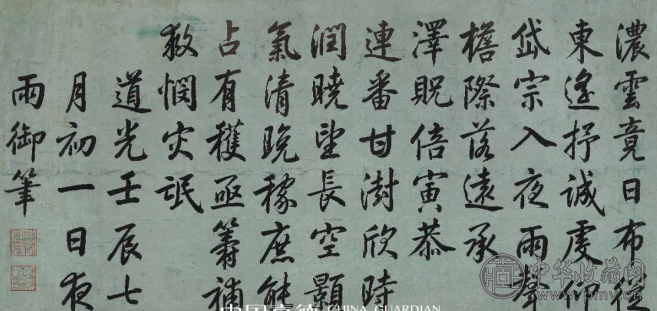 濃雲竟日布從
東遙抒誠虔仰
岱宗入夜雨聲
檐際落遠承
澤貺倍寅恭
連番甘澍欣時
潤曉望長空顥
氣清晚稼庶能
占有穫亟籌補
救憫灾氓
道光壬辰七
月初一日夜
雨御筆
中国嘉德 CHINA GUARDIAN
中华收藏网